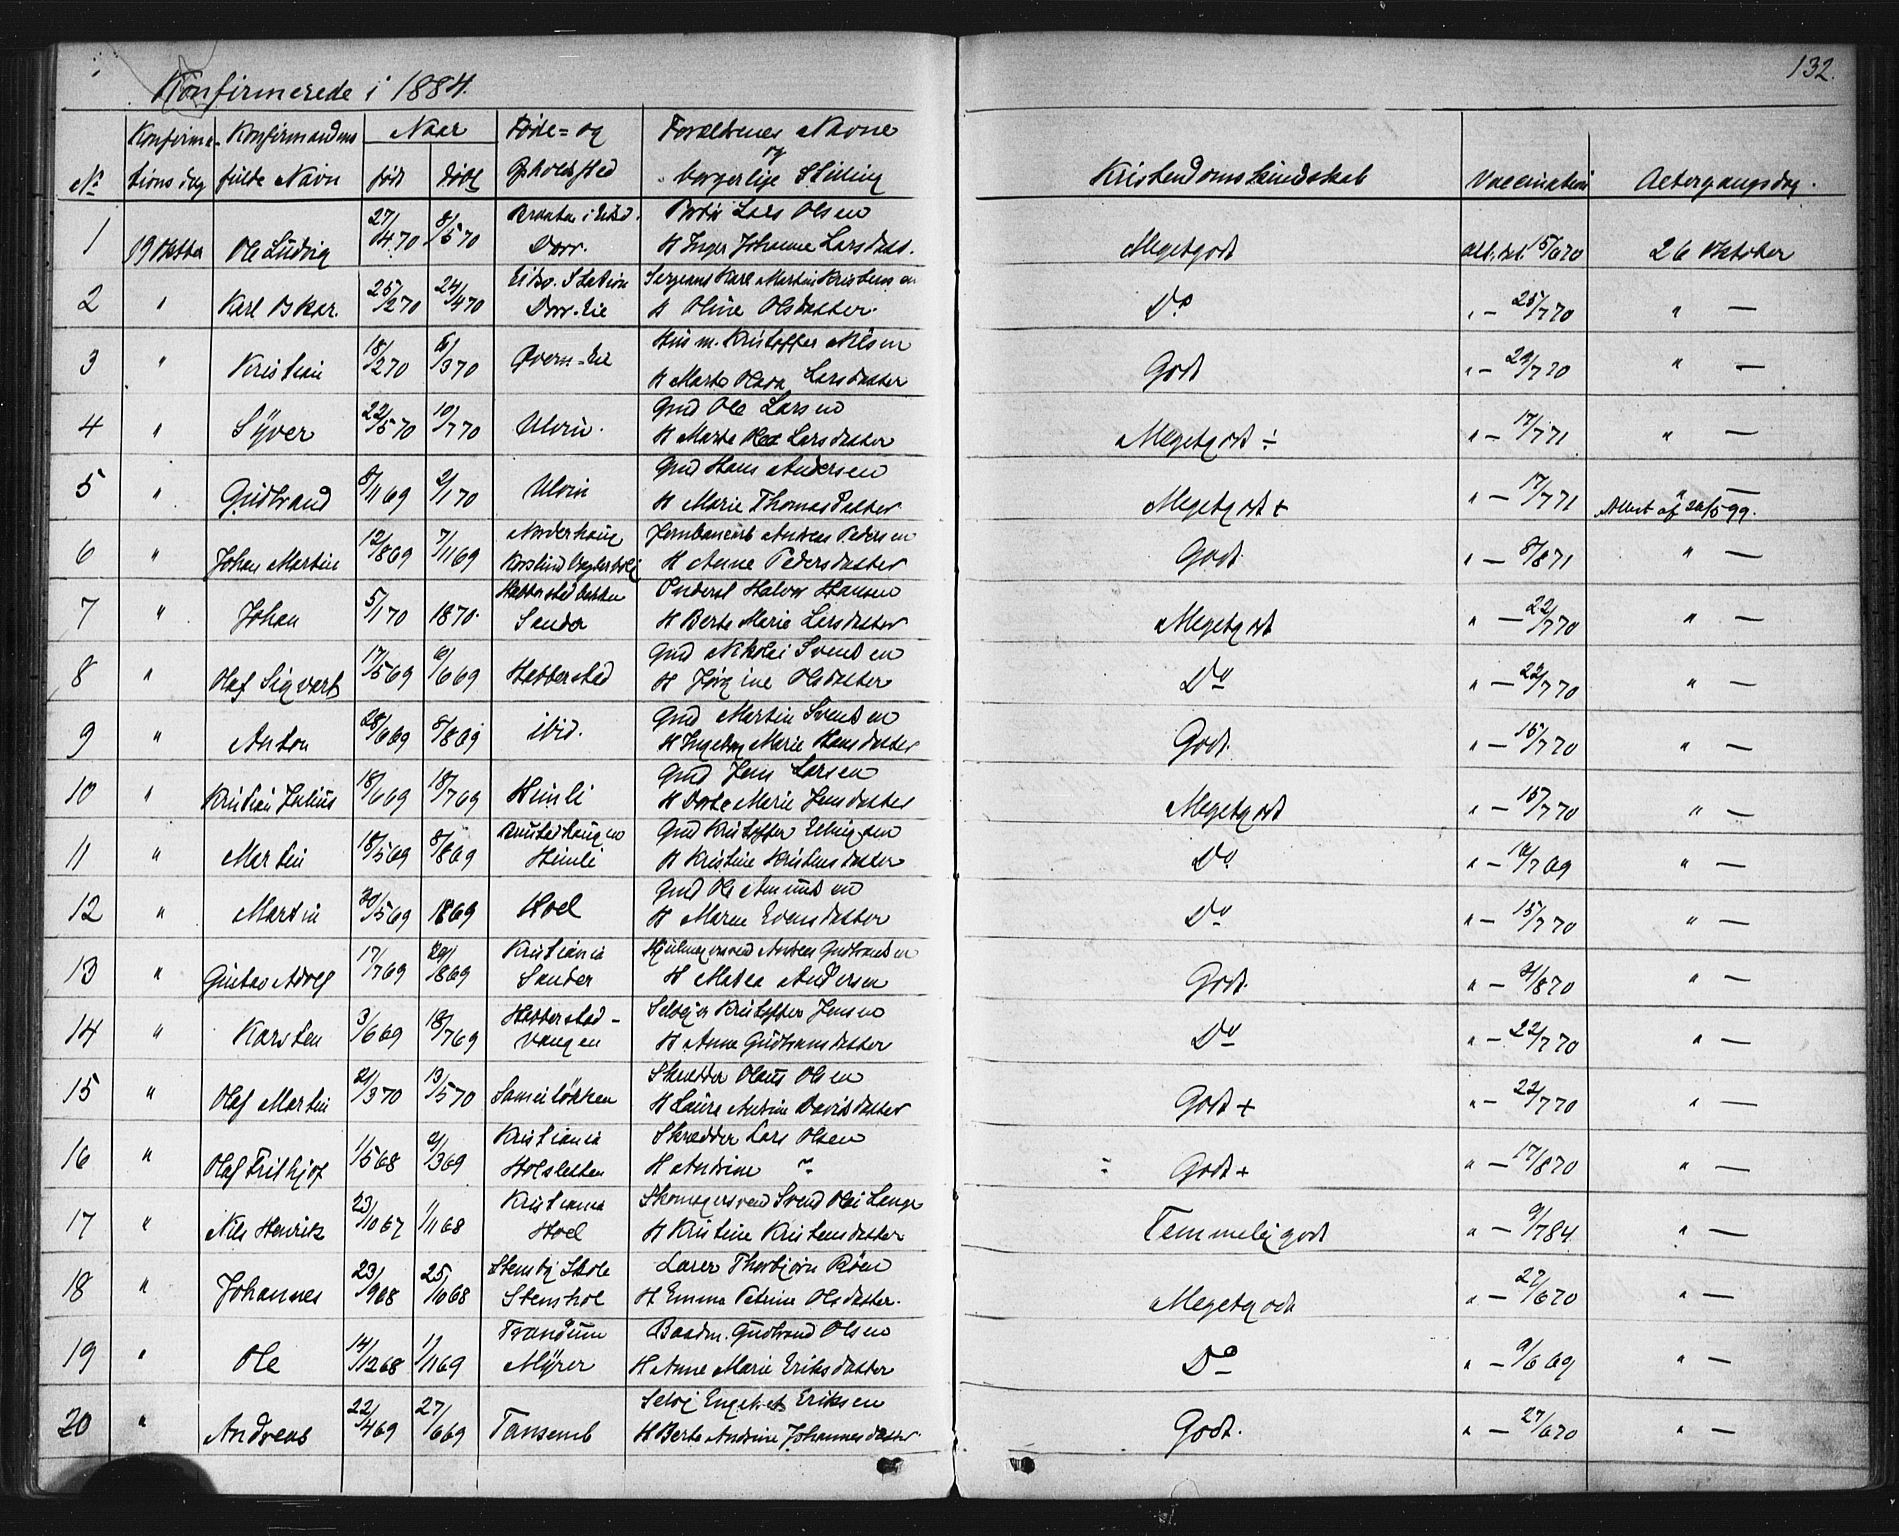 132.
Konfirmerede i 1884.
No Konfirmationsdag Konfirmandens fulde Navn Naar født døbt Føde= og Opholdsted Forældrenes Navne og borgerlige Stilling Kristendomskundskab Vaccination Altergangsdag.
1 19 Oktbr Ole Ludvig 27/4 70 8/5 70 Dorr. Lars Olsen
H Inger Johanne Larsdatt. Megetgodt 15/6 70 26 Oktober
2 " Karl Oskar. 25/2 70 24/4 70 Eidsv. Station Sergeant Karl Martin Kristensen
Dorr-Eie Oline Olsdatter. Do " — 25/7 70 " —
3 " Kristian 18/2 70 6/3 70 Qvern-Eie Husm. Kristoffer Nilsen
H Marte Larsdatter Godt " — 29/7 70 " —
4 " Syver 22/5 70 10/7 70 Ulvin. Gmd Ole Larsen
H Marte Larsdatter Megetgodt ÷ " — 17/7 71 " —
5 " Gudbrand 8/11 69 2/1 70 Ulvin Gmd Hans Andersen
H Marie Thomasdatter Megetgodt + " — 17/7 71 " —
Attest af 20/5 99.
6 " Johan Martin 12/8 69 7/11 69 Norderhaug Andreas Pedersen
H Anne Pedersdatter Godt. " — 8/8 71 " —
7 " Johan 5/1 70 1870. Sander Halvor Hansen
H Berte Marie Larsdatter Megetgodt " — 22/7 70 " —
8 " Olaf Sigvart 17/5 69 6/6 69 Habberstad Gmd Nikolai Svensen
H Jørgine Olsdatter Do " — 22/7 70 " —
9 " Anton 28/6 69 8/8 69 ibid. Gmd Martin Svensen
H Ingeborg Marie Hansdatter Godt. " — 15/7 70 " —
10 " Kristian Julius 18/6 69 18/7 69 Himli Gmd Jens Larsen
H Dorte Marie Jensdatter Megetgodt " — 15/7 70 " —
11 " Martin 18/5 69 8/8 69 Himli Gmd Kristoffer Ellingsen
H Kristine Kristensdatter Do " — " —
12 " Martin 30/5 69 1869 Hoel Gmd Ole Amundsen
H Maren Evensdatter Do " — 15/7 70 " —
13 " Gustav Adolf 17/7 69 29/8 69 Kristiania Hjulmagersvend Andreas Gudbrandsen
Sander H Matea Andersen Godt. " — " —
14 " Karsten 3/6 69 18/7 69 Habberstad- Selvejer Kristoffer Jensen
vangen H Anne Gudbransdatter Do " — 22/7 70 " —
15 " Olaf Martin 21/3 70 13/5 70 Skrædder Olaus Olsen
H Laura Andrine Davidsdatter Godt + " — 22/7 70 " —
16 " Olaf Frithjof 1/5 68 2/3 69 Kristiania Skrædder Lars Olsen
Holsletten H Andrine " Godt + " — 17/8 70 " —
17 " Nils Henrik 23/10 67 1/11 68 Kristiania Skomagersvend Svend Olai Lange
Hoel H Kristine Kristensdatter Temmeliggodt " — 9/7 84 " —
18 " Johannes 23/9 68 25/10 68 Stensby Skole Lærer Thorbjørn Røen
Stenshol H Emma Petrine Olsdatter. Megetgodt " — 27/6 70 " —
19 " Ole 14/12 68 1/1 69 Trandum Baadm. Gudbrand Olsen
Myrer H Anne Marie Eriksdatter Do " — 9/6 69 " —
20 " Andreas 22/4 69 27/6 69 Tansemb Selvej Engebret Eriksen
H Berte Andrine Johannesdatter Godt. " — 27/6 70 " —